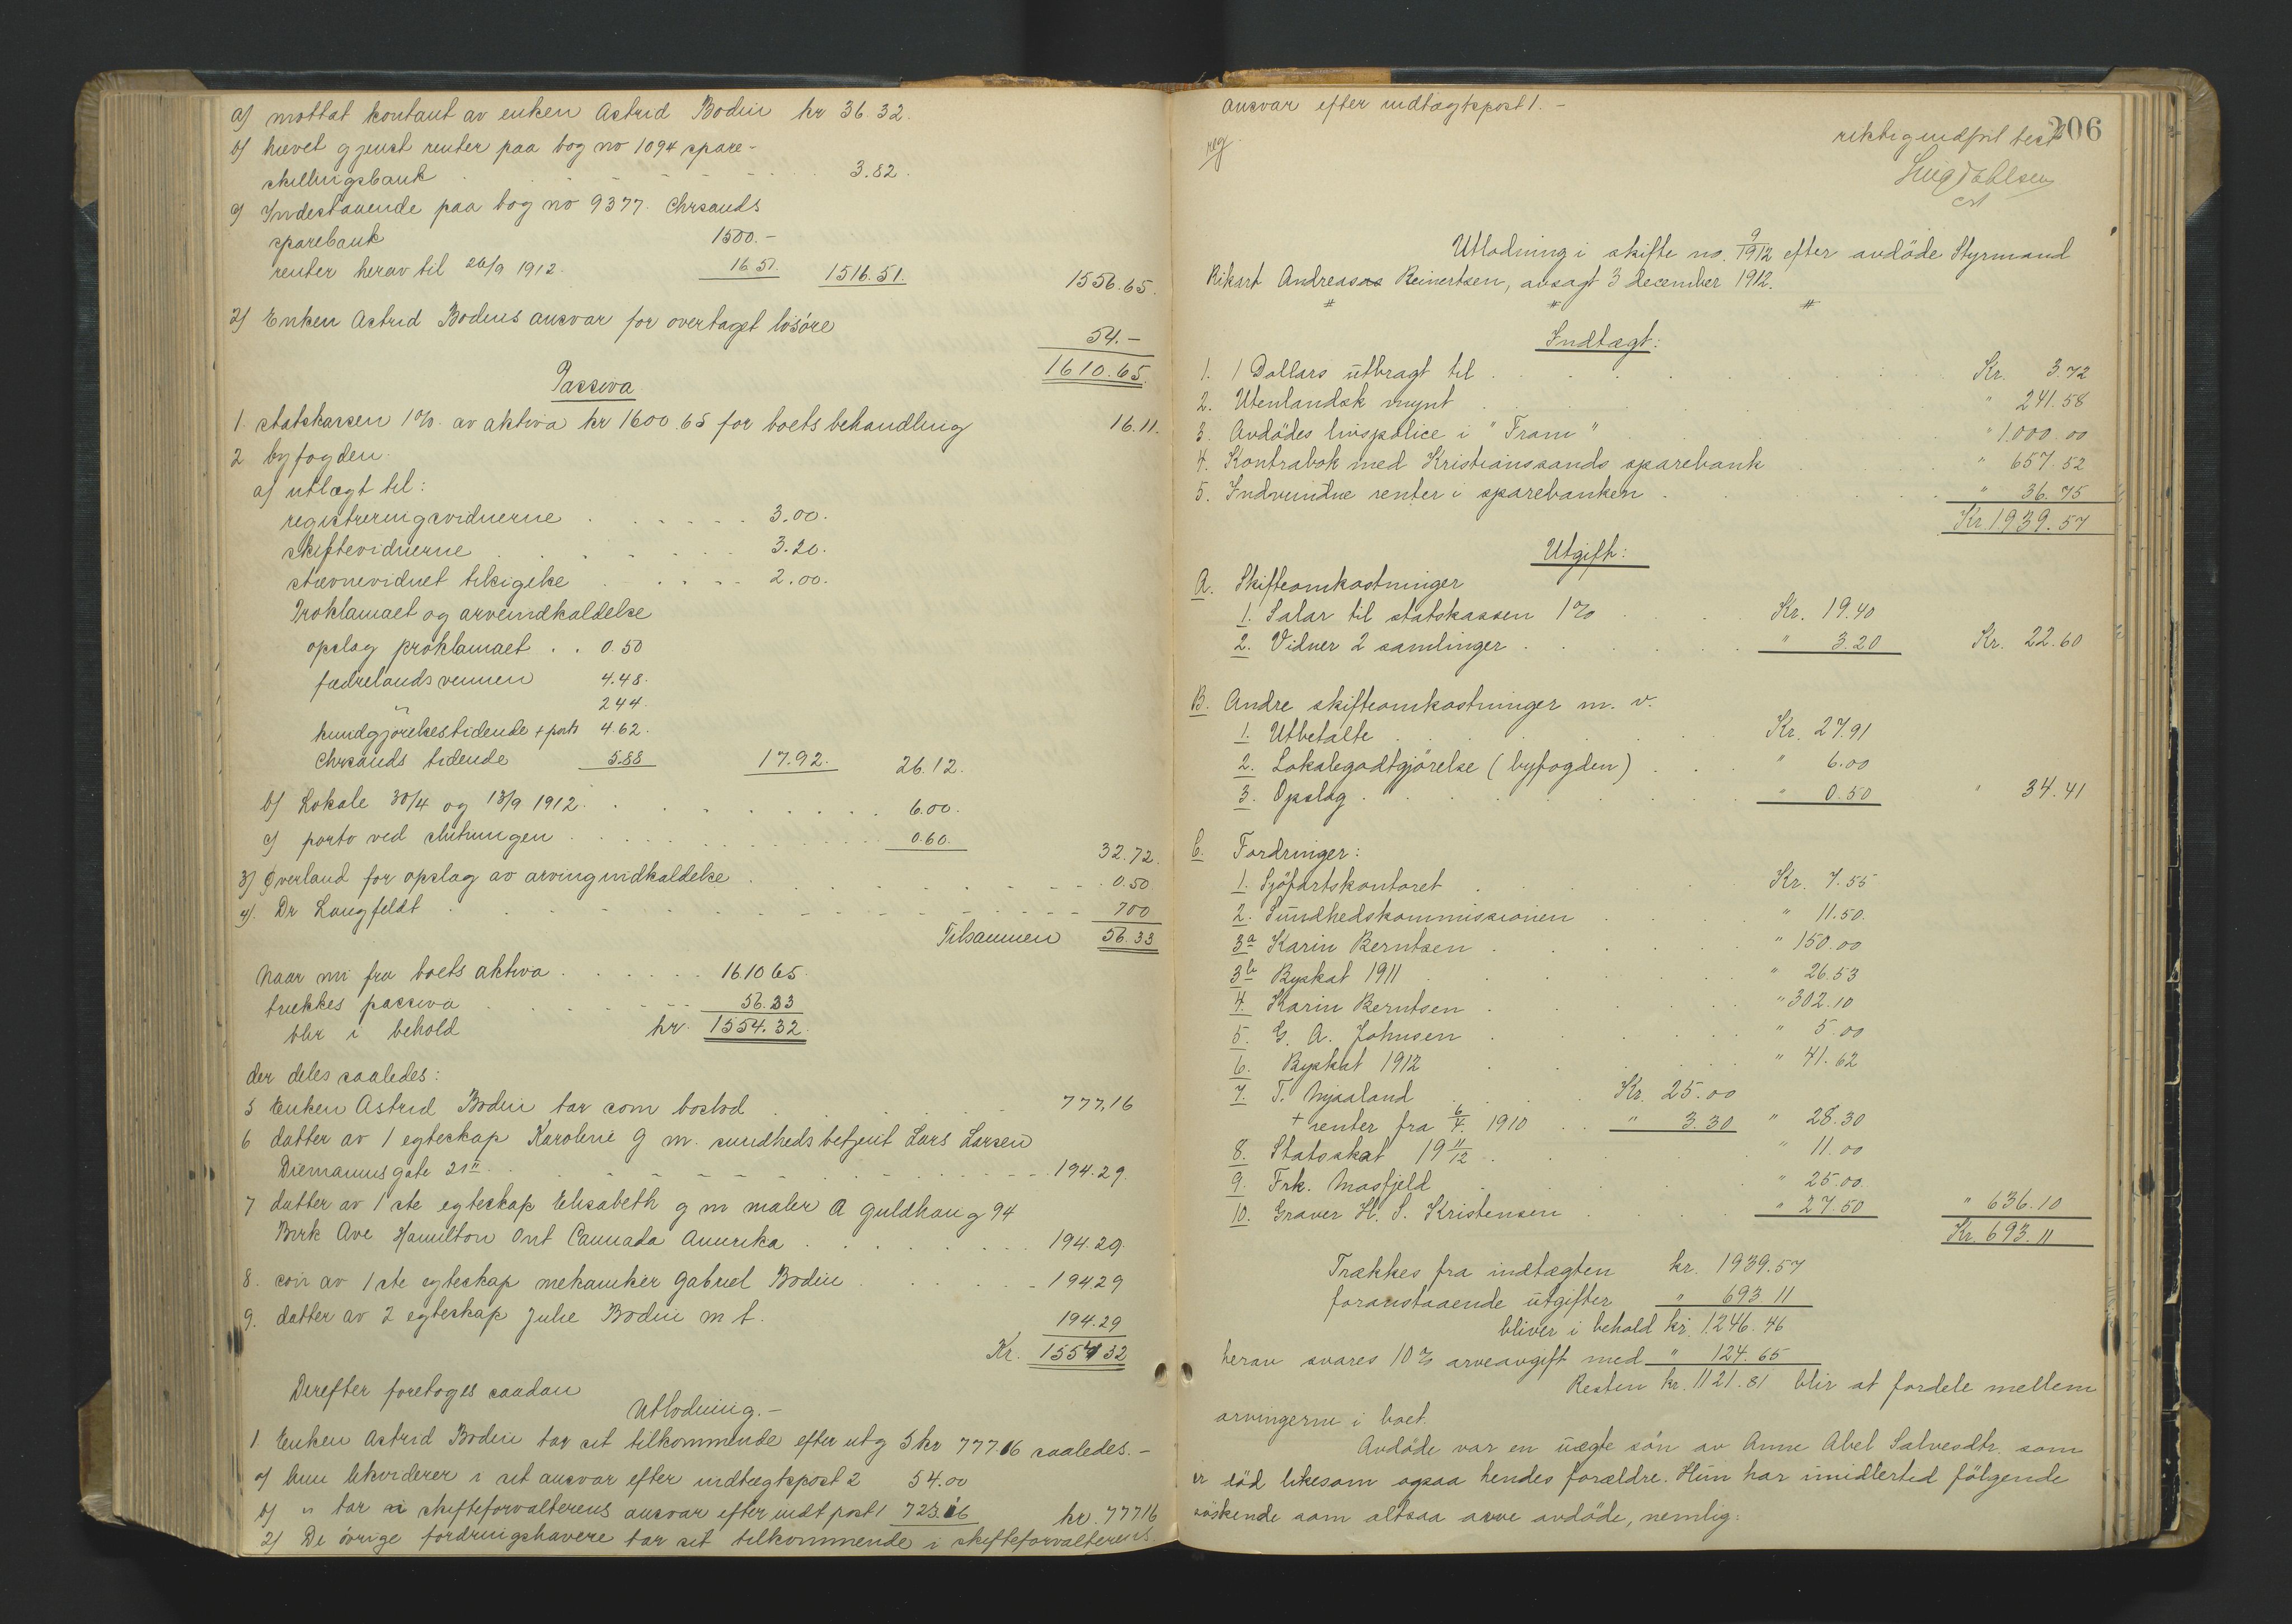 a) mottat kontant av enken Astrid Bodin kr 36.32.
b) hævet gjenst renter paa bog no 1094 spare-
skillingsbank 3.82.
c) Indestaaende paa bog no 9377. Chrsands
sparebank 1500.-
renter herav til 26/9 1912. 16.51. 1516.51. 1556.65.
2) Enken Astrid Bodins ansvar for overtaget løsöre 54.-
1610.65.
Passiva
1. statskassen 1% av aktiva kr 1600.65 for boets behandling 16.11.
2 byfogden.
a) utlægt til:
registreringsvidnerne 3.00.
skiftevidnerne 3.20.
stevnevidnet tilsigelse 2.00.
Proklamaet og arveindkaldelse
opslag proklamaet . . 0.50
fædrelandsvennen 4.48.
" 244.
kundgjørelsestidende + porto 4.62.
Chrsands tidende 5.88 17.92. 26.12.
b) Lokale 30/4 og 13/9 1912. 6.00.
c) porto ved slutningen 0.60. 32.72.
3) Øverland for opslag av arvingindkaldelse 0.50
4). Dr Langfeldt 700
Tilsammen 56.33
Naar nu fra boets aktiva 1610 65.
trækkes passiva 56.33
blir i behold kr. 1554.32.
der deles saaledes:
5 Enken Astrid Bodin tar som boslod 777.16
6 datter av 1 egteskap Karoline g m. sundhedsbetjent Lars Larsen
Diemannsgate 21 II 194.29.
7 datter av 1ste egteskap Elisabeth g m maler A Guldhaug 94
Birk Ave Hamilton Ont Cannada Amerika 194.29.
8. søn av 1ste egteskap mekaniker Gabriel Bodin 194.29
9. datter av 2 egteskap Julie Bodin m t. 194.29
Kr. 1554 32
Derefter foretoges saadan
Utlodning.-
1. Enken Astrid Bodin tar sit tilkommende efter utg 5 kr 777.16 saaledes.-
a) hun likviderer i sit ansvar efter indtægtspost 2 54.00
b) " tar i skifteforvalterens ansvar efter indt post 1 723.16 kr. 777.16
2) De øvrige fordringshavere tar sit tilkommende i skifteforvalterens
ansvar efter indtægtspost 1. -
206
reg.
riktig indført test
Utlodning i skifte no. 9/1912 efter avdöde Styrmand
Rikart Andreas Reinertsen, avsagt 3 december 1912.
Indtægt:
1. 1 Dollars utbragt til Kr. 3.72
2. Utenlandsk mynt " 241.58
3. Avdödes livspolice i "Fram" " 1.000.00
4. Kontrabok med Kristianssands sparebank " 657.52
5. Indvundne renter i sparebanken " 36.75
Kr. 1939.57
Utgift:
A. Skifteomkostninger
1. Salar til statskassen 1% Kr. 19.40
2. Vidner 2 samlinger " 3.20 Kr. 22.60
B. Andre skifteomkostninger m. v.
1. Utbetalte Kr. 27.91
2. Lokalegodtgjörelse (byfogden) " 6.00
3. Opslag " 0.50 " 34.41
C. Fordringer:
1. Sjöfartskontoret Kr. 7.55
2. Sundhedskommissionen " 11.50.
3a Karin Berntsen " 150.00
3b Byskat 1911 " 26.53
4. Karin Berntsen " 302.10
5. G. A. Johnsen " 5.00
6. Byskat 1912 " 41.62
7. T. Mjaaland Kr. 25.00
+ renter fra 6/4. 1910 " 3.30 " 28.30
8. Statsskat 19 11/12 " 11.00
9. Frk. Mosfjeld " 25.00
10. Graver H. S. Kristensen " 27.50 " 636.10
Kr. 693.11
Trækkes fra indtægten kr. 1939.57
foranstaaende utgifter " 693 11
bliver i behold kr. 1246.46
herav svares 10% arveavgift med " 124.65
Resten kr. 1121.81 blir at fordele mellem
arvingerne i boet.
Avdöde var en uægte sön av Anne Abel Salvesdtr. som
er död likesom ogsaa hendes forældre. Hun har imidlertid fölgende
söskende som altsaa arve avdöde, nemlig: